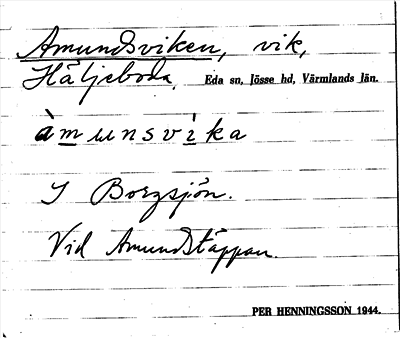 Amundsviken, vik,
Häljeboda, Eda sn, Jösse hd, Värmlands län.
àmunsvìka
I Borgsjön.
Vid Amundstäppan.
PER HENNINGSSON 1944.